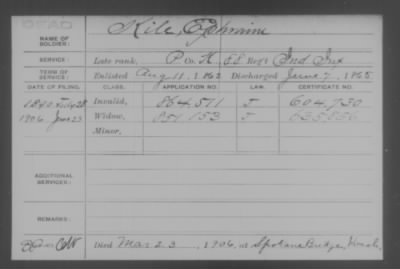 DEAD
NAME OF SOLDIER: Kile, Ephraim
SERVICE: Late rank, P Co. K 88 Reg't Ind Inf
TERM OF SERVICE: Enlisted Aug 11, 1862 Discharged June 7, 1865
DATE OF FILING. CLASS. APPLICATION NO. LAW. CERTIFICATE NO.
1890 July 28 Invalid, 864,571 J 604,730
1906 June 23 Widow, 851,153 J
Minor,
ADDITIONAL SERVICES:
REMARKS:
Died Mar 23, 1906, at Spokane Bridge, Wash.